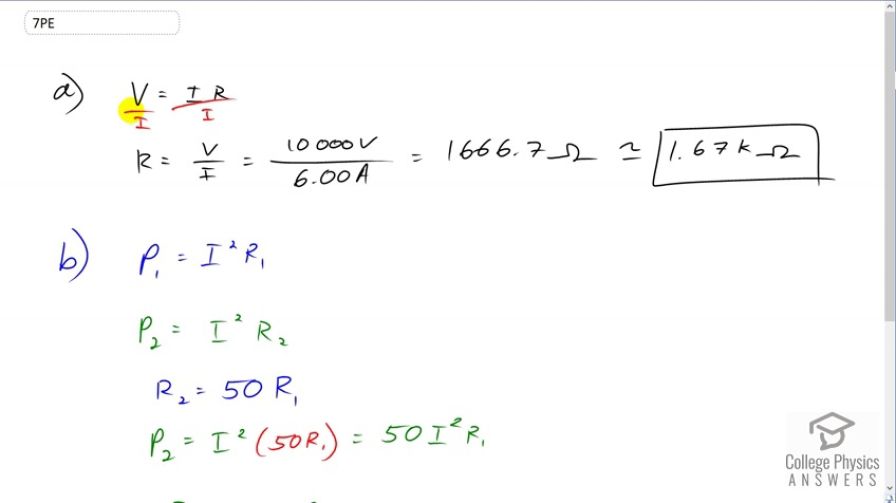 7PE
a) V/I = I R/I
R = V/I = 10 000V/6.00A = 1666.7 Ω ≃ 1.67 kΩ
b) P₁ = I² R₁
P₂ = I² R₂
R₂ = 50 R₁
P₂ = I² (50R₁) = 50 I² R₁
College Physics
ANSWERS